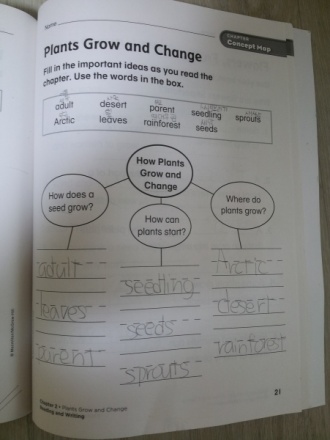 Name
CHAPTER
Concept Map
Plants Grow and Change
Fill in the important ideas as you read the
chapter. Use the words in the box.
adult desert parent seedling sprouts
Arctic leaves rainforest seeds
How Plants
Grow and
Change
How does a
seed grow?
How can
plants start?
Where do
plants grow?
adult
leaves
parent
seedling
seeds
sprouts
Arctic
desert
rainforest
21
Chapter 2 • Plants Grow and Change
Reading and Writing